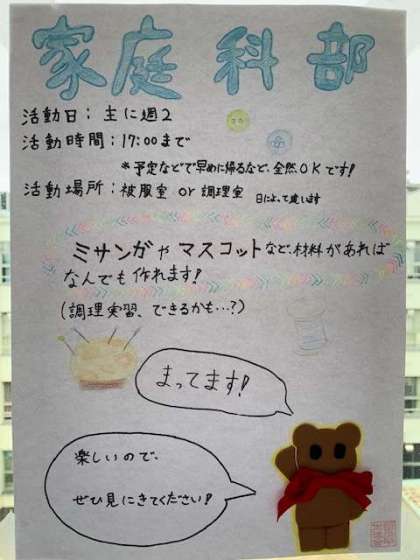 家庭科部
活動日：主に週2
活動時間：17:00まで
*予定などで早めに帰るなど、全然OKです!
活動場所：被服室 or 調理室 日によって違います
ミサンガやマスコットなど、材料があれば
なんでも作れます!
(調理実習、できるかも…?)
まってます!
楽しいので、
ぜひ見にきてください!